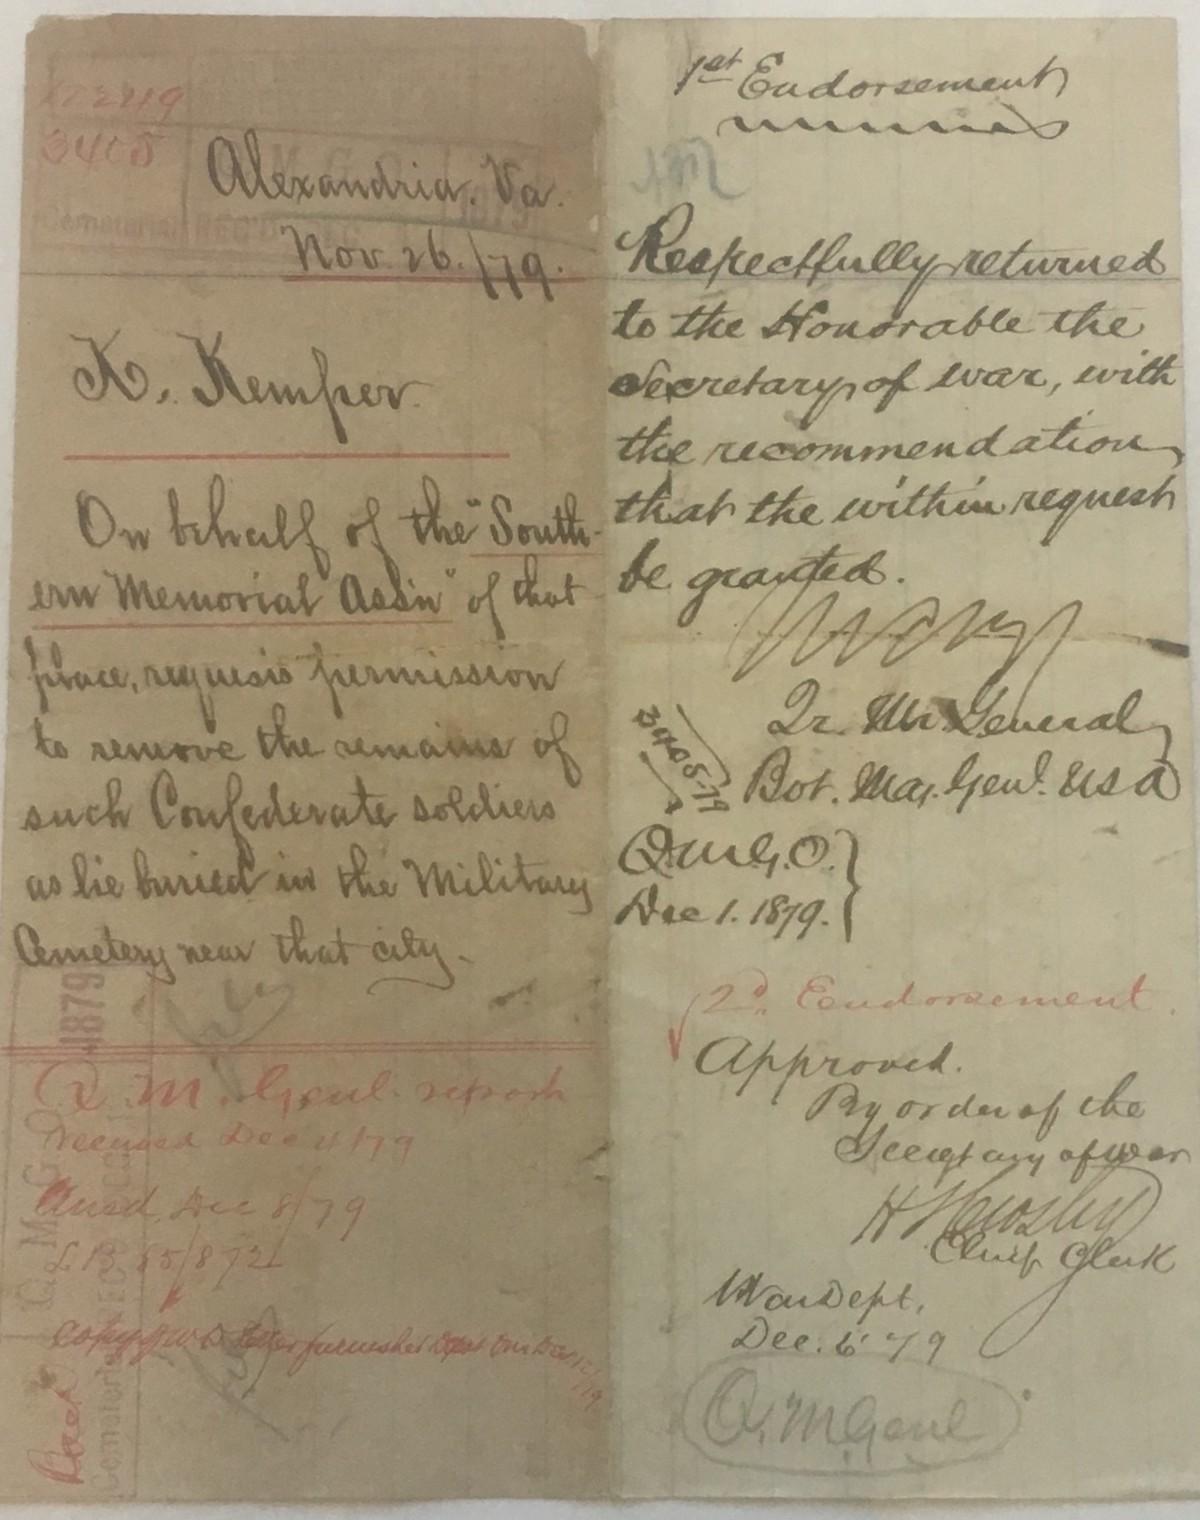 3405
Alexandria. Va.
Nov. 26./79.
K. Kemper.
On behalf of the "South-
ern Memorial Ass'n" of that
place, requests permission
to remove the remains of
such Confederate soldiers
as lie buried in the Military
Cemetery near that city.
Q. M. Genl. report
received Dec 4/79
Ansd. Dec 8/79
1879
1st Endorsement
Respectfully returned
to the Honorable the
Secretary of war, with
the recommendation
that the within request
be granted.
Qr. Mr. General,
Bvt. Maj. Genl. USA
3405-79
Q.M.G.O.
Dec 1. 1879.
2d. Endorsement.
Approved.
By order of the
Secretary of war
H Crosby
Chief Clerk
War Dept,
Dec. 6 '79
Q. M. Genl